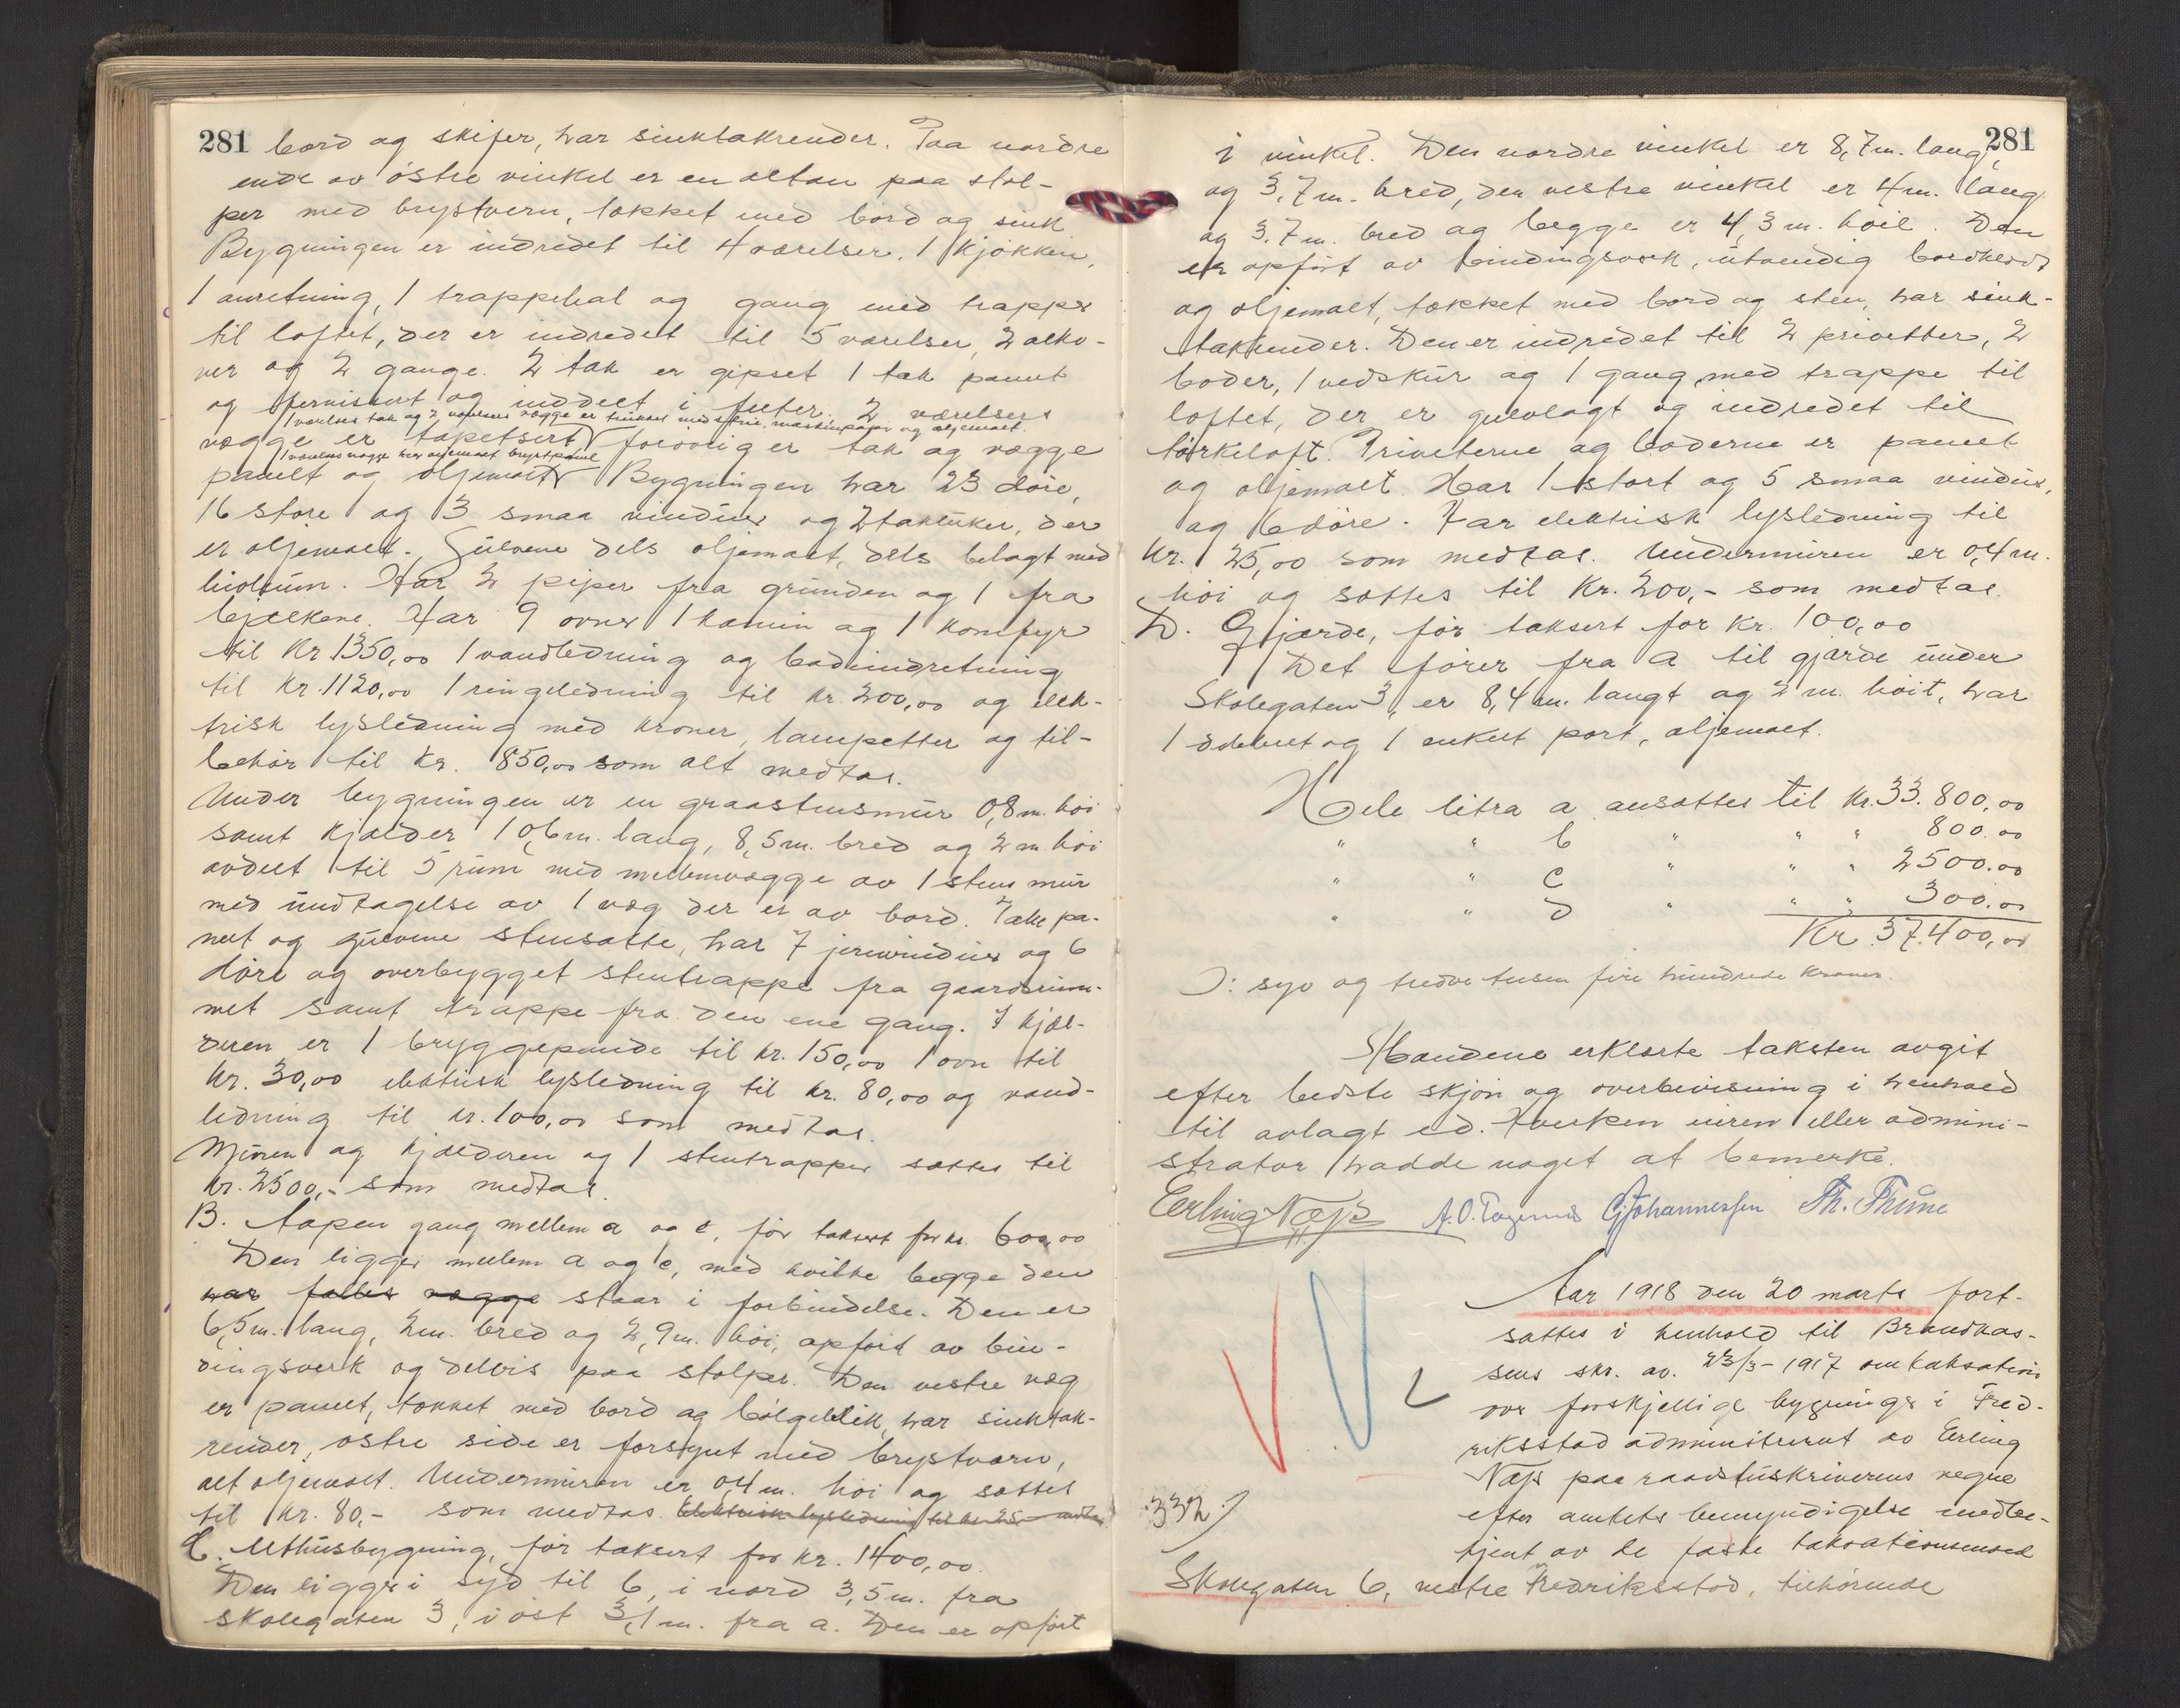 281 bord og skifer, har sinktakrender. Paa nordre
ende av østre vinkel er en altan paa stol-
per med brystvern, tækket med bord og sink
Bygningen er indredet til 4 værelser, 1 kjøkken,
1 anretning, 1 trappehal og gang med trapper
til loftet, der er indredet til 5 værelser, 2 alko-
ver og 2 gange. 2 tak er gipset 1 tak panelt
og fernissert og inddelt i felter. 2 værelsers
1 værelses tak og 2 værelsers vægge er trukket med strie, maskinpapir og oljemalt.
vægge er tapetsert, forøvrig er tak og vægge
1 værelses vægge har oljemalt brystpanel
panelt og oljemalt. Bygningen har 23 døre,
16 store og 3 smaa vinduer og 2 takluker, der
er oljemalt. Gulvene dels oljemalt, dels belagt med
linoleum. Har 2 piper fra grunden og 1 fra
bjælkene. Har 9 ovner 1 kamin og 1 komfyr
til Kr. 1350,00 1 vandledning og badeindretning
til kr. 1120,00 1 ringeledning til kr. 200,00 og elek-
trisk lysledning med kroner, lampetter og til-
behør til kr. 850,00 som alt medtas.
Under bygningen er en graastensmur 0,8 m. høi
samt kjælder 10,6 m. lang, 8,5 m. bred og 2 m høi
avdelt til 5 rum med mellemvægge av 1 stens mur
med undtagelse av 1 væg der er av bord. Taket pa-
nelt og gulvene stensatte, har 7 jernvinduer og 6
døre og overbygget stentrappe fra gaardsrum-
met samt trappe fra den ene gang. I kjæl-
deren er 1 bryggepande til kr. 150,00 1 ovn til
kr. 30,00 elektrisk lysledning til kr. 80,00 og vand-
ledning til kr. 100,00 som medtas.
Muren og kjælderen og 1 stentrapper sættes til
kr. 2500,- som medtas.
B. Aapen gang mellem a og c, før taksert for kr. 600,00
Den ligger mellem a og c, med hvilke begge den
har fælles vægge staar i forbindelse. Den er
6,5 m. lang, 2 m. bred og 2,9 m. høi, opført av bin-
dingsverk og delvis paa stolper. Den vestre væg
er panelt, tækket med bord og bølgeblik, har sinktak-
render, østre side er forsynt med brystværn,
alt oljemalt. Undermuren er 0,4 m. høi og sættes
til kr. 80,- som medtas. Elektrisk lysledning til kr. 25,- medtas
C. Uthusbygning, før taksert for kr. 1400,00.
Den ligger i syd til b, i nord 3,5 m. fra
skolegaten 3, i øst 3,1 m. fra a. Den er opført
281
i vinkel. Den nordre vinkel er 8,7 m. lang,
og 3,7 m. bred, den vestre vinkel er 4 m. lang
og 3,7 m. bred og begge er 4,3 m. høie. Den
er opført av bindingsverk, utvendig bordklædt
og oljemalt, tækket med bord og sten, har sink-
takrender. Den er indredet til 2 privetter, 2
boder, 1 vedskur og 1 gang med trappe til
loftet, der er gulvlagt og indredet til
tørkeloft. Priveterne og boderne er panelt
og oljemalt. Har 1 stort og 5 smaa vinduer,
og 6 døre. Har elektrisk lysledning til
kr. 25,00 som medtas. Undermuren er 0,4 m.
høi og sættes til Kr. 200,- som medtas.
D. Gjærde, før taksert for kr. 100,00
Det fører fra a til gjærde under
Skolegaten 3, er 8,4 m. langt og 2 m. høit, har
1 dobbelt og 1 enkelt port, oljemalt.
Hele litra a ansættes til kr. 33.800,00
" " b " " " 800.00
" " c " " " 2500.00
" " d " " " 300.00
Kr. 37.400,00
ɔ: syv og tredve tusen fire hundrede kroner.
Mændene erklærte taksten avgit
efter bedste skjøn og overbevisning i henhold
til avlagt ed. Hverken eieren eller admini-
strator hadde noget at bemerke.
Erling Næss A. O. G. Johannessen Th. Thune
Aar 1918 den 20 marts fort-
sattes i henhold til Brandkas-
sens skr. av. 23/3-1917 om taksation
over forskjellige bygninger i Fred-
riksstad administrert av Erling
Næss paa raadstuskriverens vegne
efter amtets bemyndigelse medbe-
tjent av de faste taksationsmænd
332)
Skolegaten 6, vestre Fredriksstad, tilhørende